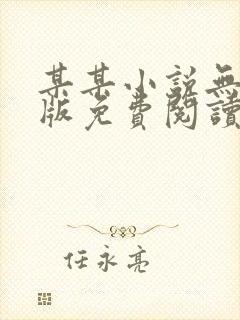 某某小说無
版免費閱讀
任永亮